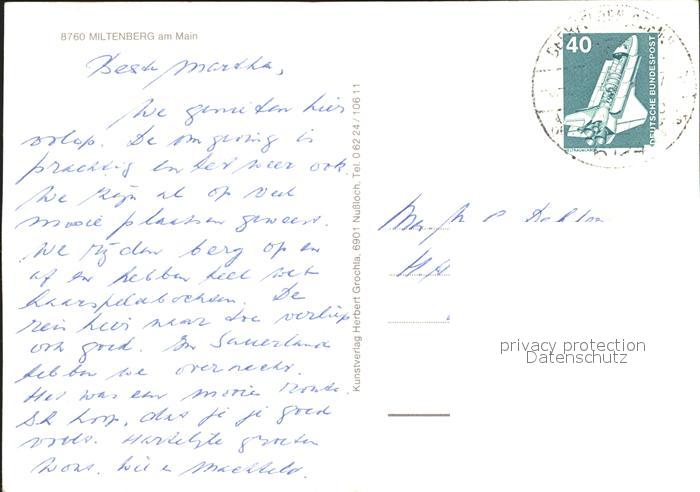 8760 MILTENBERG am Main
Beste Martha,
We genieten hier
volop. De omgeving is
prachtig en het weer ook.
We zijn al op veel
mooie plaatsen geweest.
We rijden berg op en
af en hebben heel wat
haarspeldbochten. De
reis hier naar toe verliep
ook goed. In Sauerland
hebben we overnacht.
Het was een mooie route.
Ik hoop, dat je je goed
voelt. Hartelijke groeten
Wons. Wil en Machteld.
Kunstverlag Herbert Grochla, 6901 Nußloch, Tel. 0 62 24 / 106 11
40
DEUTSCHE BUNDESPOST
privacy protection
Datenschutz